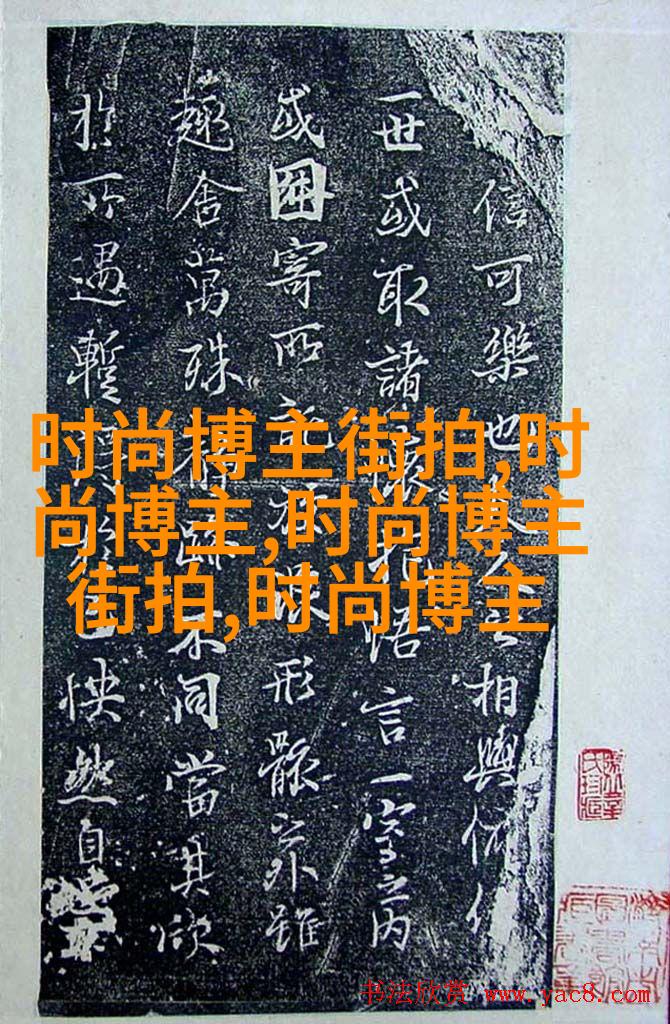 信可樂也相與俯仰
一世或取諸懷抱悟言一室之内
或因寄所形骸之外雖
趣舍萬殊不同當其欣
於所遇暫己怏然自
时尚博主街拍,时
尚博主,时尚博主
街拍,时尚博主
书法欣赏 www.yac8.com